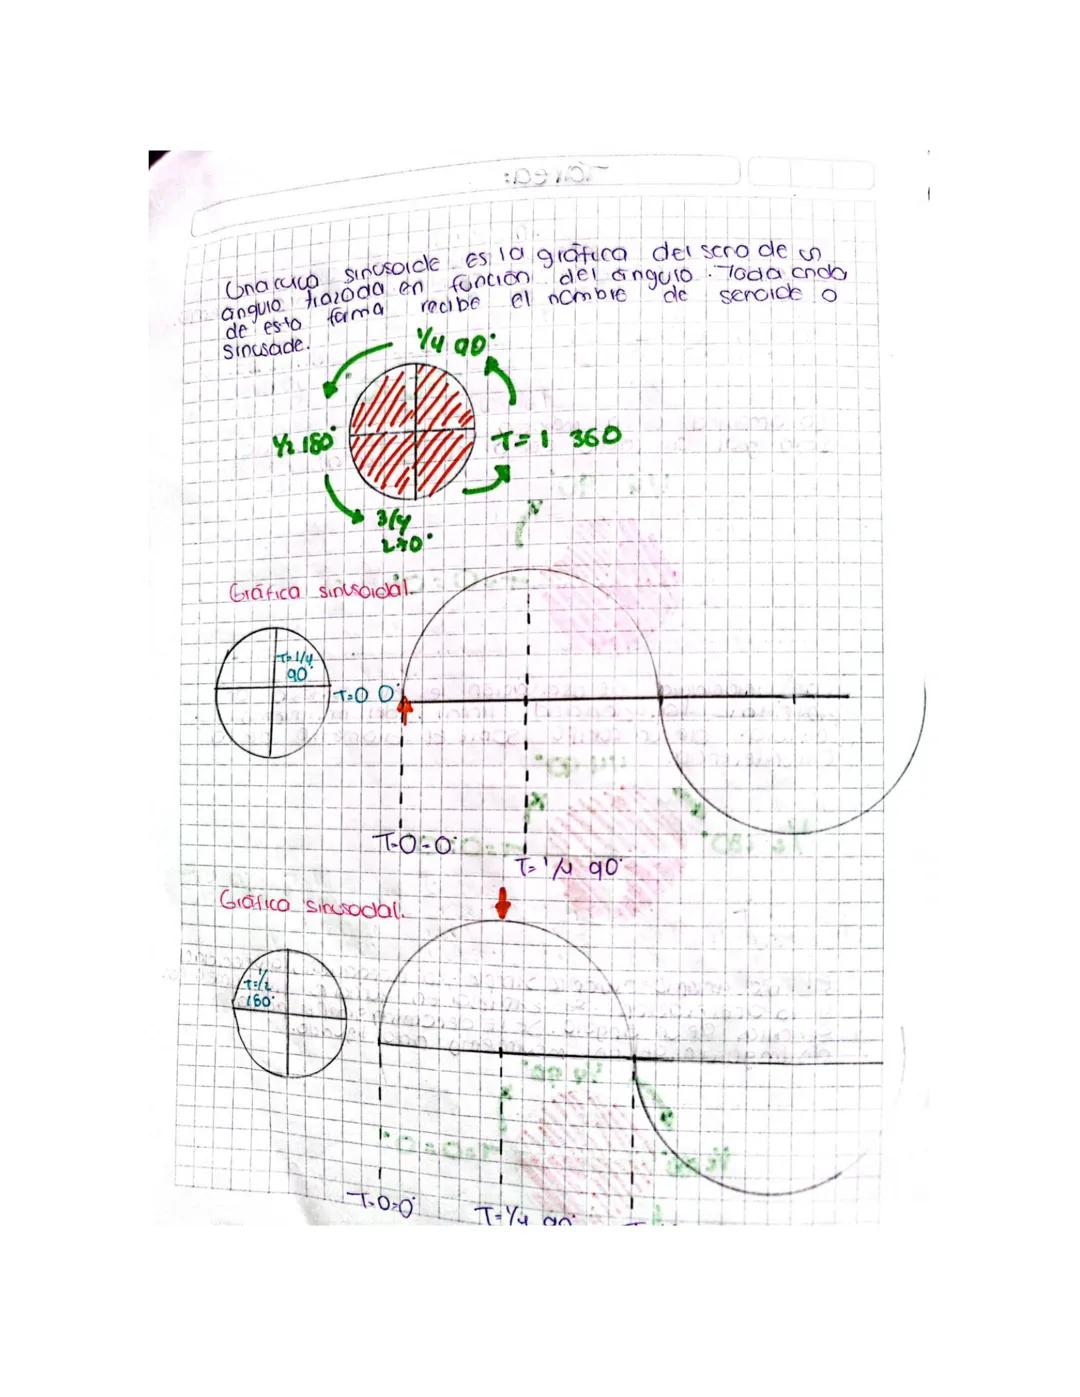 Una curva sinusoide es la gráfica del seno de un
angulo trazada en función del ángulo. Toda onda
de esta forma recibe el nombre de senoide o
sinusade.
1/4 90°
1/2 180°
T=1 360
3/4
270°
Gráfica sinusoidal.
T=1/4
90°
T=0 0°
T=0=0°
T=1/4 90°
Gráfico sinusodal.
T=1/2
180°
T=0=0°
T=1/4 90°